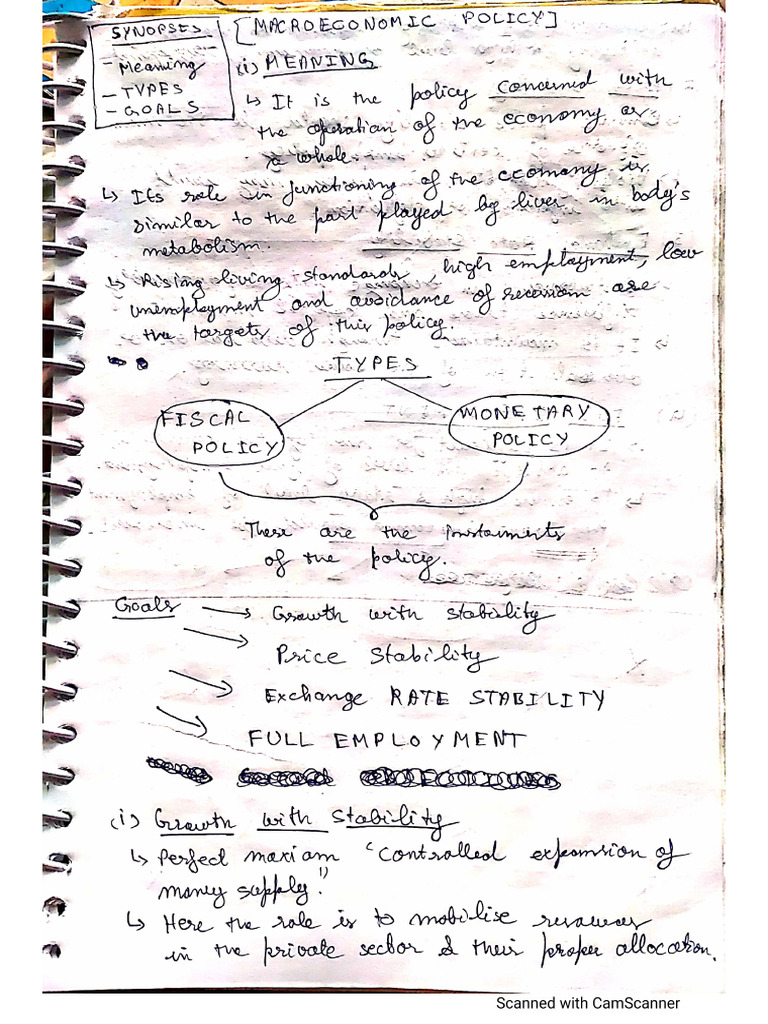 SYNOPSES
- Meaning
- TYPES
- GOALS
[MACROECONOMIC POLICY]
(i) MEANING
↳ It is the policy concerned with
the operation of the economy as
a whole.
↳ Its role in functioning of the economy is
similar to the part played by liver in body's
metabolism.
↳ Rising living standards, high employment, low
unemployment and avoidance of recession are
the targets of this policy.
TYPES
FISCAL
POLICY
MONETARY
POLICY
These are the instruments
of the policy.
Goals → Growth with stability
→ Price stability
→ Exchange RATE STABILITY
→ FULL EMPLOYMENT
(i) Growth with Stability
↳ Perfect maxiam "Controlled expansion of
money supply."
↳ Here the role is to mobilise resources
in the private sector & their proper allocation.
Scanned with CamScanner